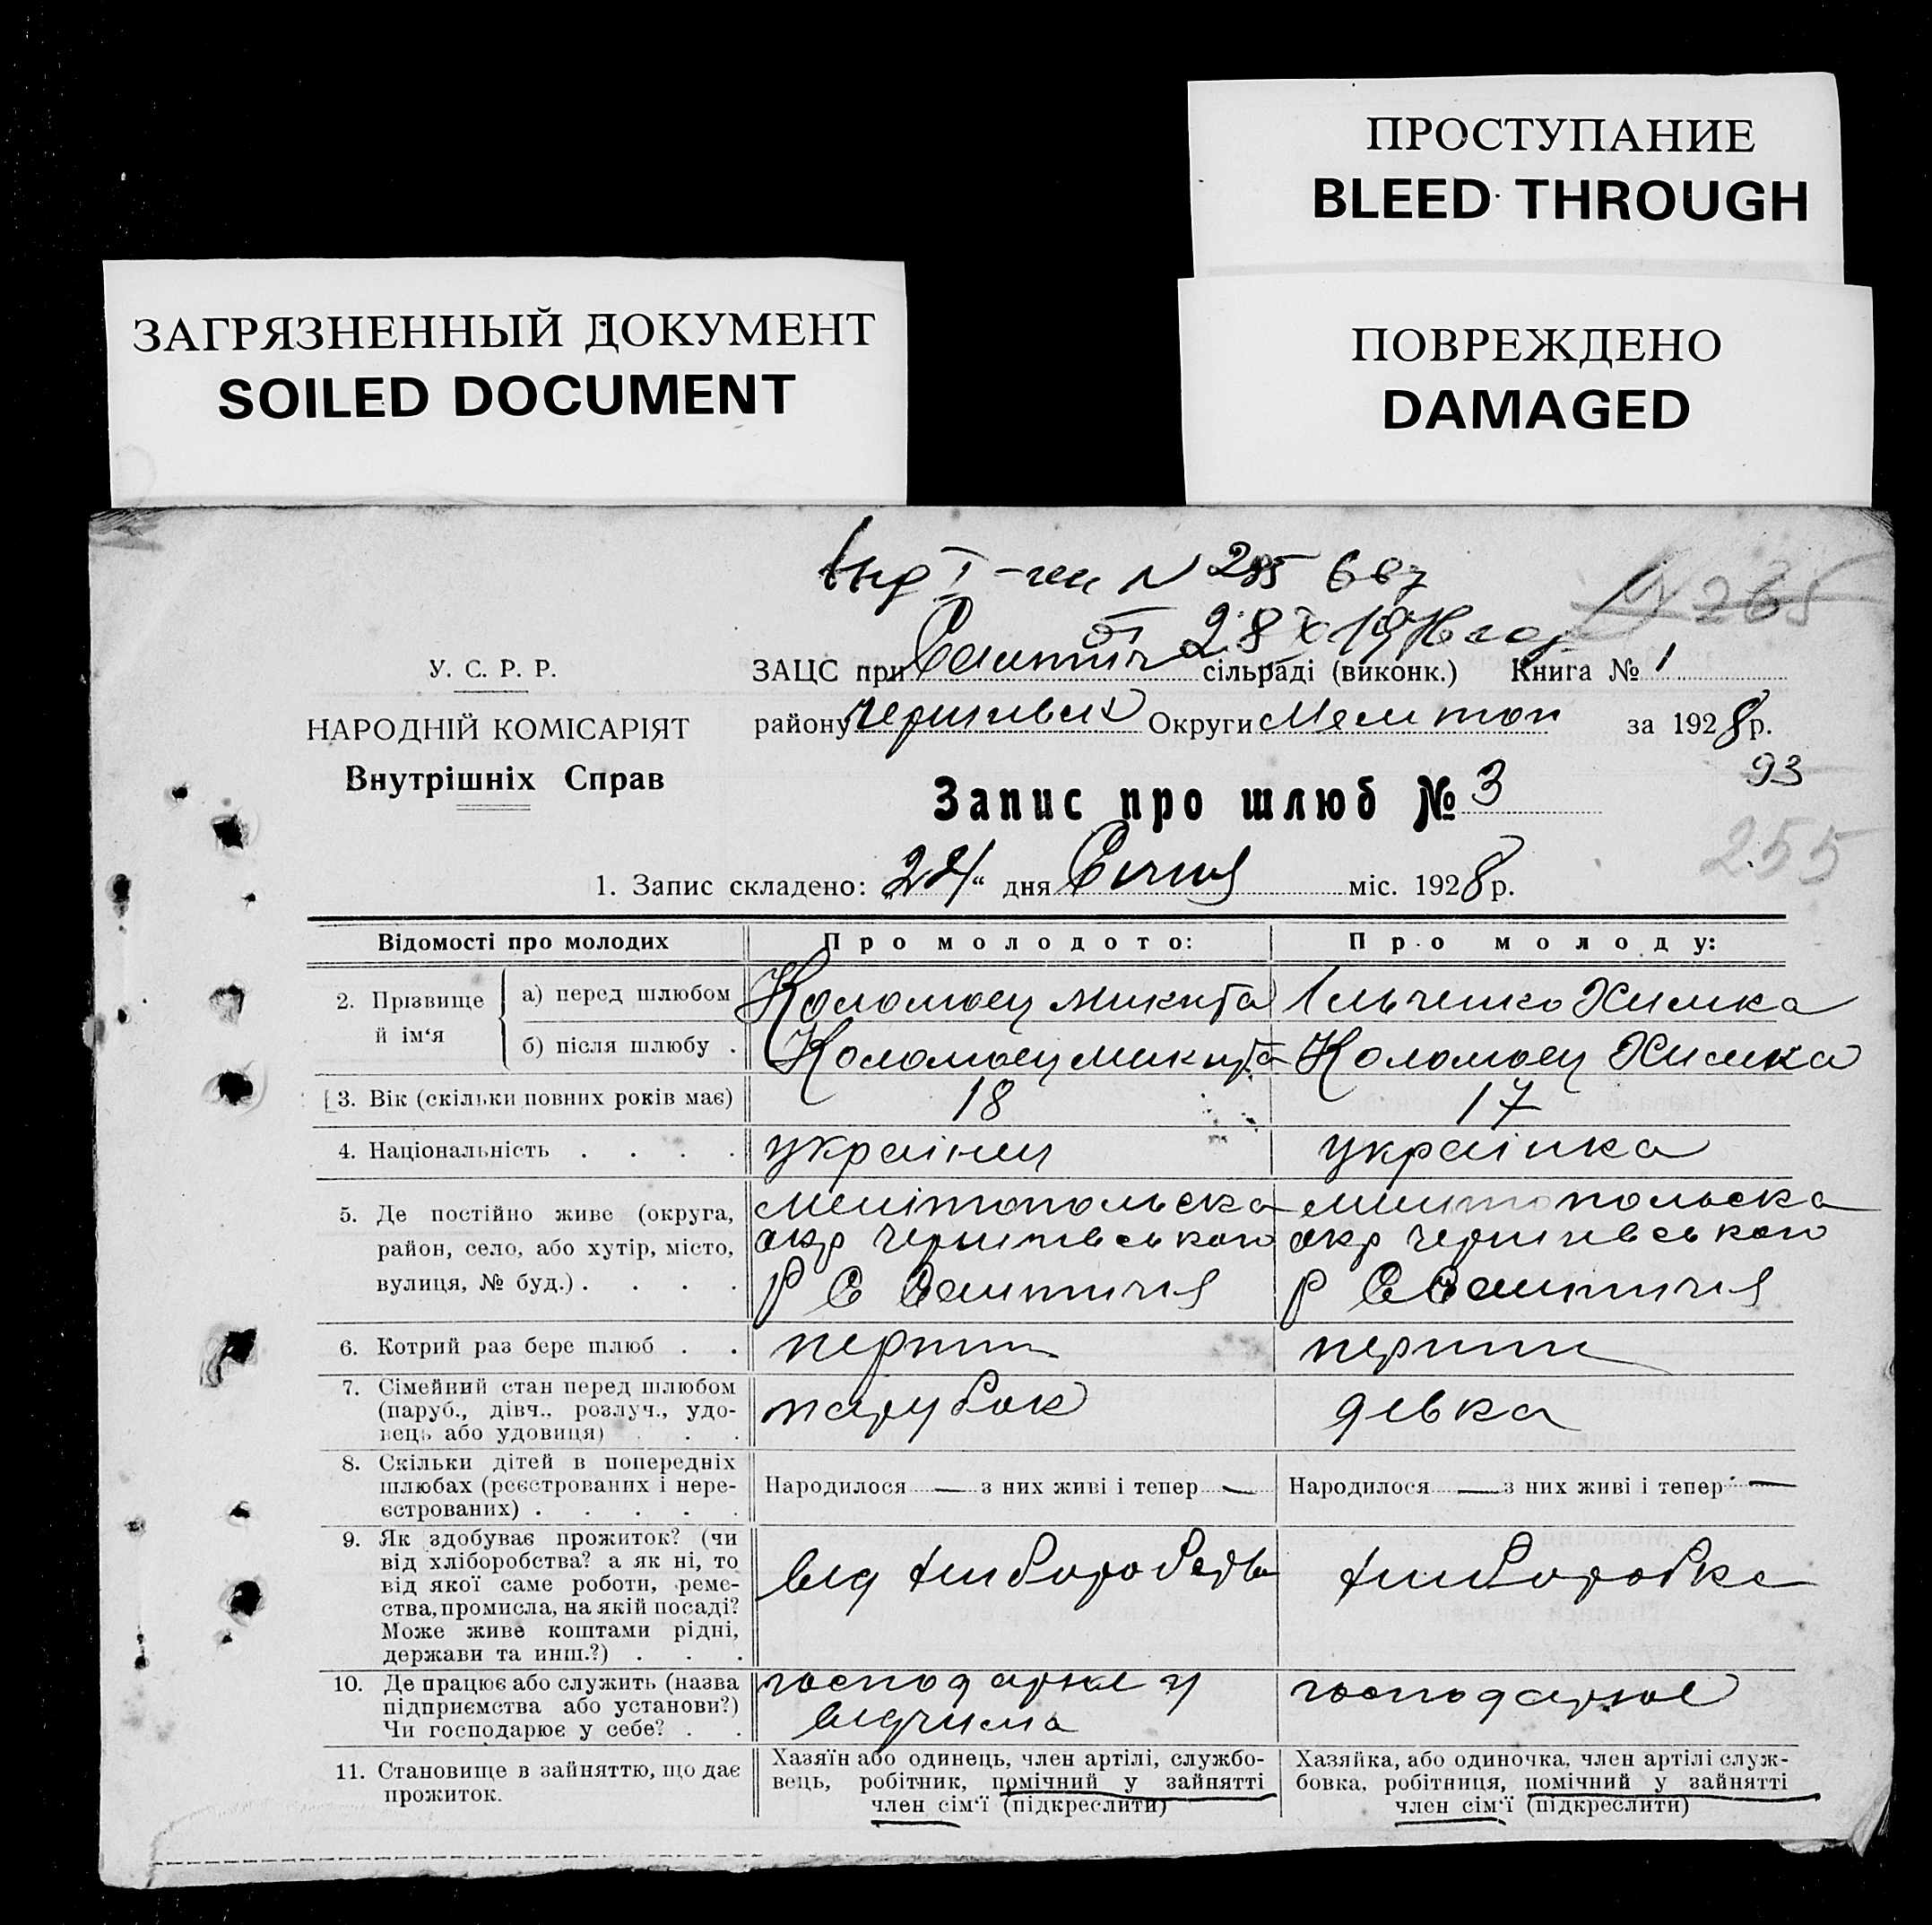 ПРОСТУПАНИЕ
BLEED THROUGH
ЗАГРЯЗНЕННЫЙ ДОКУМЕНТ
SOILED DOCUMENT
ПОВРЕЖДЕНО
DAMAGED
N 285
№ 265
28 X
У. С. Р. Р.
ЗАЦС при сільраді (виконк.) Книга № 1
НАРОДНІЙ КОМІСАРІЯТ
Внутрішніх Справ
району Округи Мелитоп за 1928 р.
93
Запис про шлюб № 3
255
1. Запис складено: „24“ дня Січня міс. 1928 р.
Відомості про молодих Про молодого: Про молоду:
2. Прізвище й ім‘я
а) перед шлюбом Коломоец Микита Ільченко Химка
б) після шлюбу . Коломоец Микита Коломоец Химка
3. Вік (скільки повних років має) 18 17
4. Національність . . . . українец українка
5. Де постійно живе (округа, Мелітопольска Мелитопольска
район, село, або хутір, місто, окр Чернигівського окр Чернигівського
вулиця, № буд.) . . . . Р С Р С
6. Котрий раз бере шлюб . . перший перший
7. Сімейний стан перед шлюбом
(паруб., дівч., розлуч., удо- парубок дівка
вець або удовиця) . . .
8. Скільки дітей в попередніх
шлюбах (реєстрованих і нере- Народилося — з них живі і тепер — Народилося — з них живі і тепер —
єстрованих) . . . . .
9. Як здобуває прожиток? (чи
від хліборобства? а як ні, то від хлиборобства хлиборобка
від якої саме роботи, реме-
ства, промисла, на якій посаді?
Може живе коштами рідні,
держави та инш.?) . . .
10. Де працює або служить (назва господарює у господарює
підприємства або установи?) відчима
Чи господарює у себе? . .
11. Становище в зайняттю, що дає
прожиток.
Хазяїн або одинець, член артілі, службо-
вець, робітник, помічний у зайнятті
член сім‘ї (підкреслити)
Хазяйка, або одиночка, член артілі служ-
бовка, робітниця, помічний у зайнятті
член сім‘ї (підкреслити)